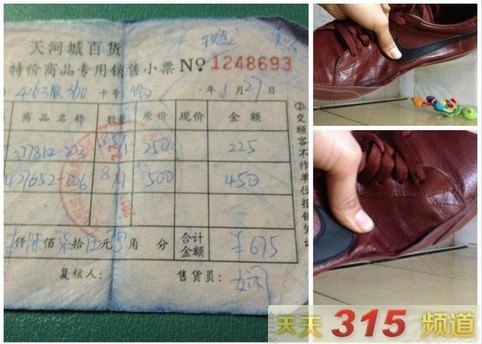 天河城百货
特价商品专用销售小票 No 1248693
卡号 1月27
商品名称 数量 原价 现价 金额
377812-203 250 225
427652-006 500 450
仟 佰 拾 元 角 分 合计金额 ¥675
复核人： 售货员：
②交顾客不作单位报销凭证
天天315频道